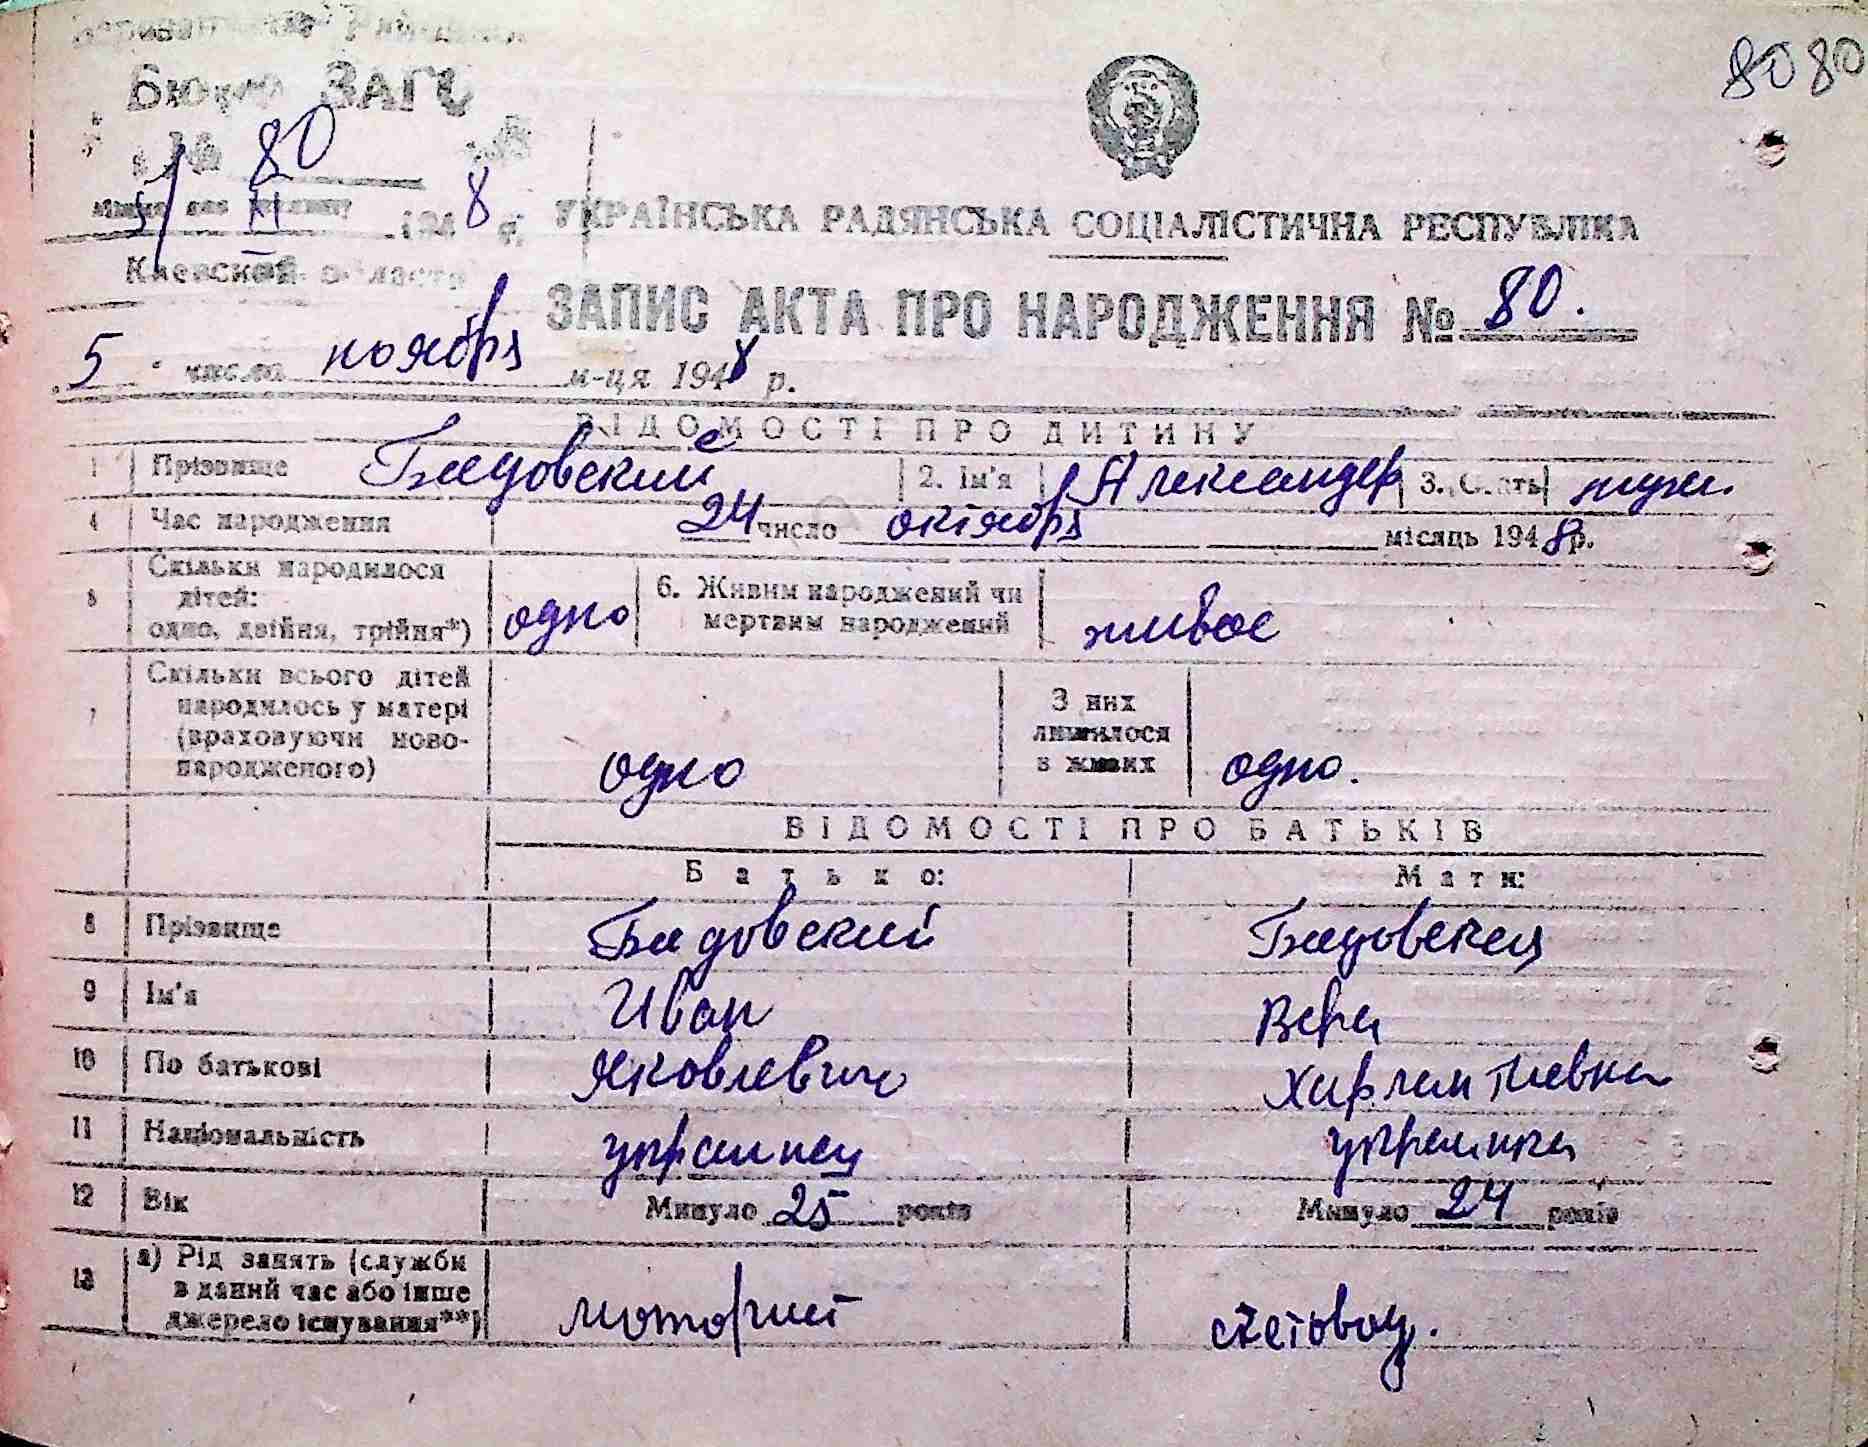 80 80
Бюро ЗАГС
№ 80
5/XI 1948 г.
Киевской области
УКРАЇНСЬКА РАДЯНСЬКА СОЦІАЛІСТИЧНА РЕСПУБЛІКА
ЗАПИС АКТА ПРО НАРОДЖЕННЯ № 80.
5 число ноября м-ця 1948 р.
ВІДОМОСТІ ПРО ДИТИНУ
1 Прізвище Бадовский 2. Ім'я Александр 3. Стать муж.
4 Час народження 24 число октября місяць 1948 р.
5 Скільки народилося
дітей:
одно, двійня, трійня*) одно 6. Живим народжений чи
мертвим народжений живое
7 Скільки всього дітей
народилось у матері
(враховуючи ново-
народженого) одно З них
лишилося
в живих одно.
ВІДОМОСТІ ПРО БАТЬКІВ
Батько: Мати:
8 Прізвище Бадовский Бадовская
9 Ім'я Иван Вера
10 По батькові Яковлевич Харлампиевна
11 Національність украинец украинка
12 Вік Минуло 25 років Минуло 24 років
13 а) Рід занять (служби
в даний час або інше
джерело існування**) моторист счетовод.